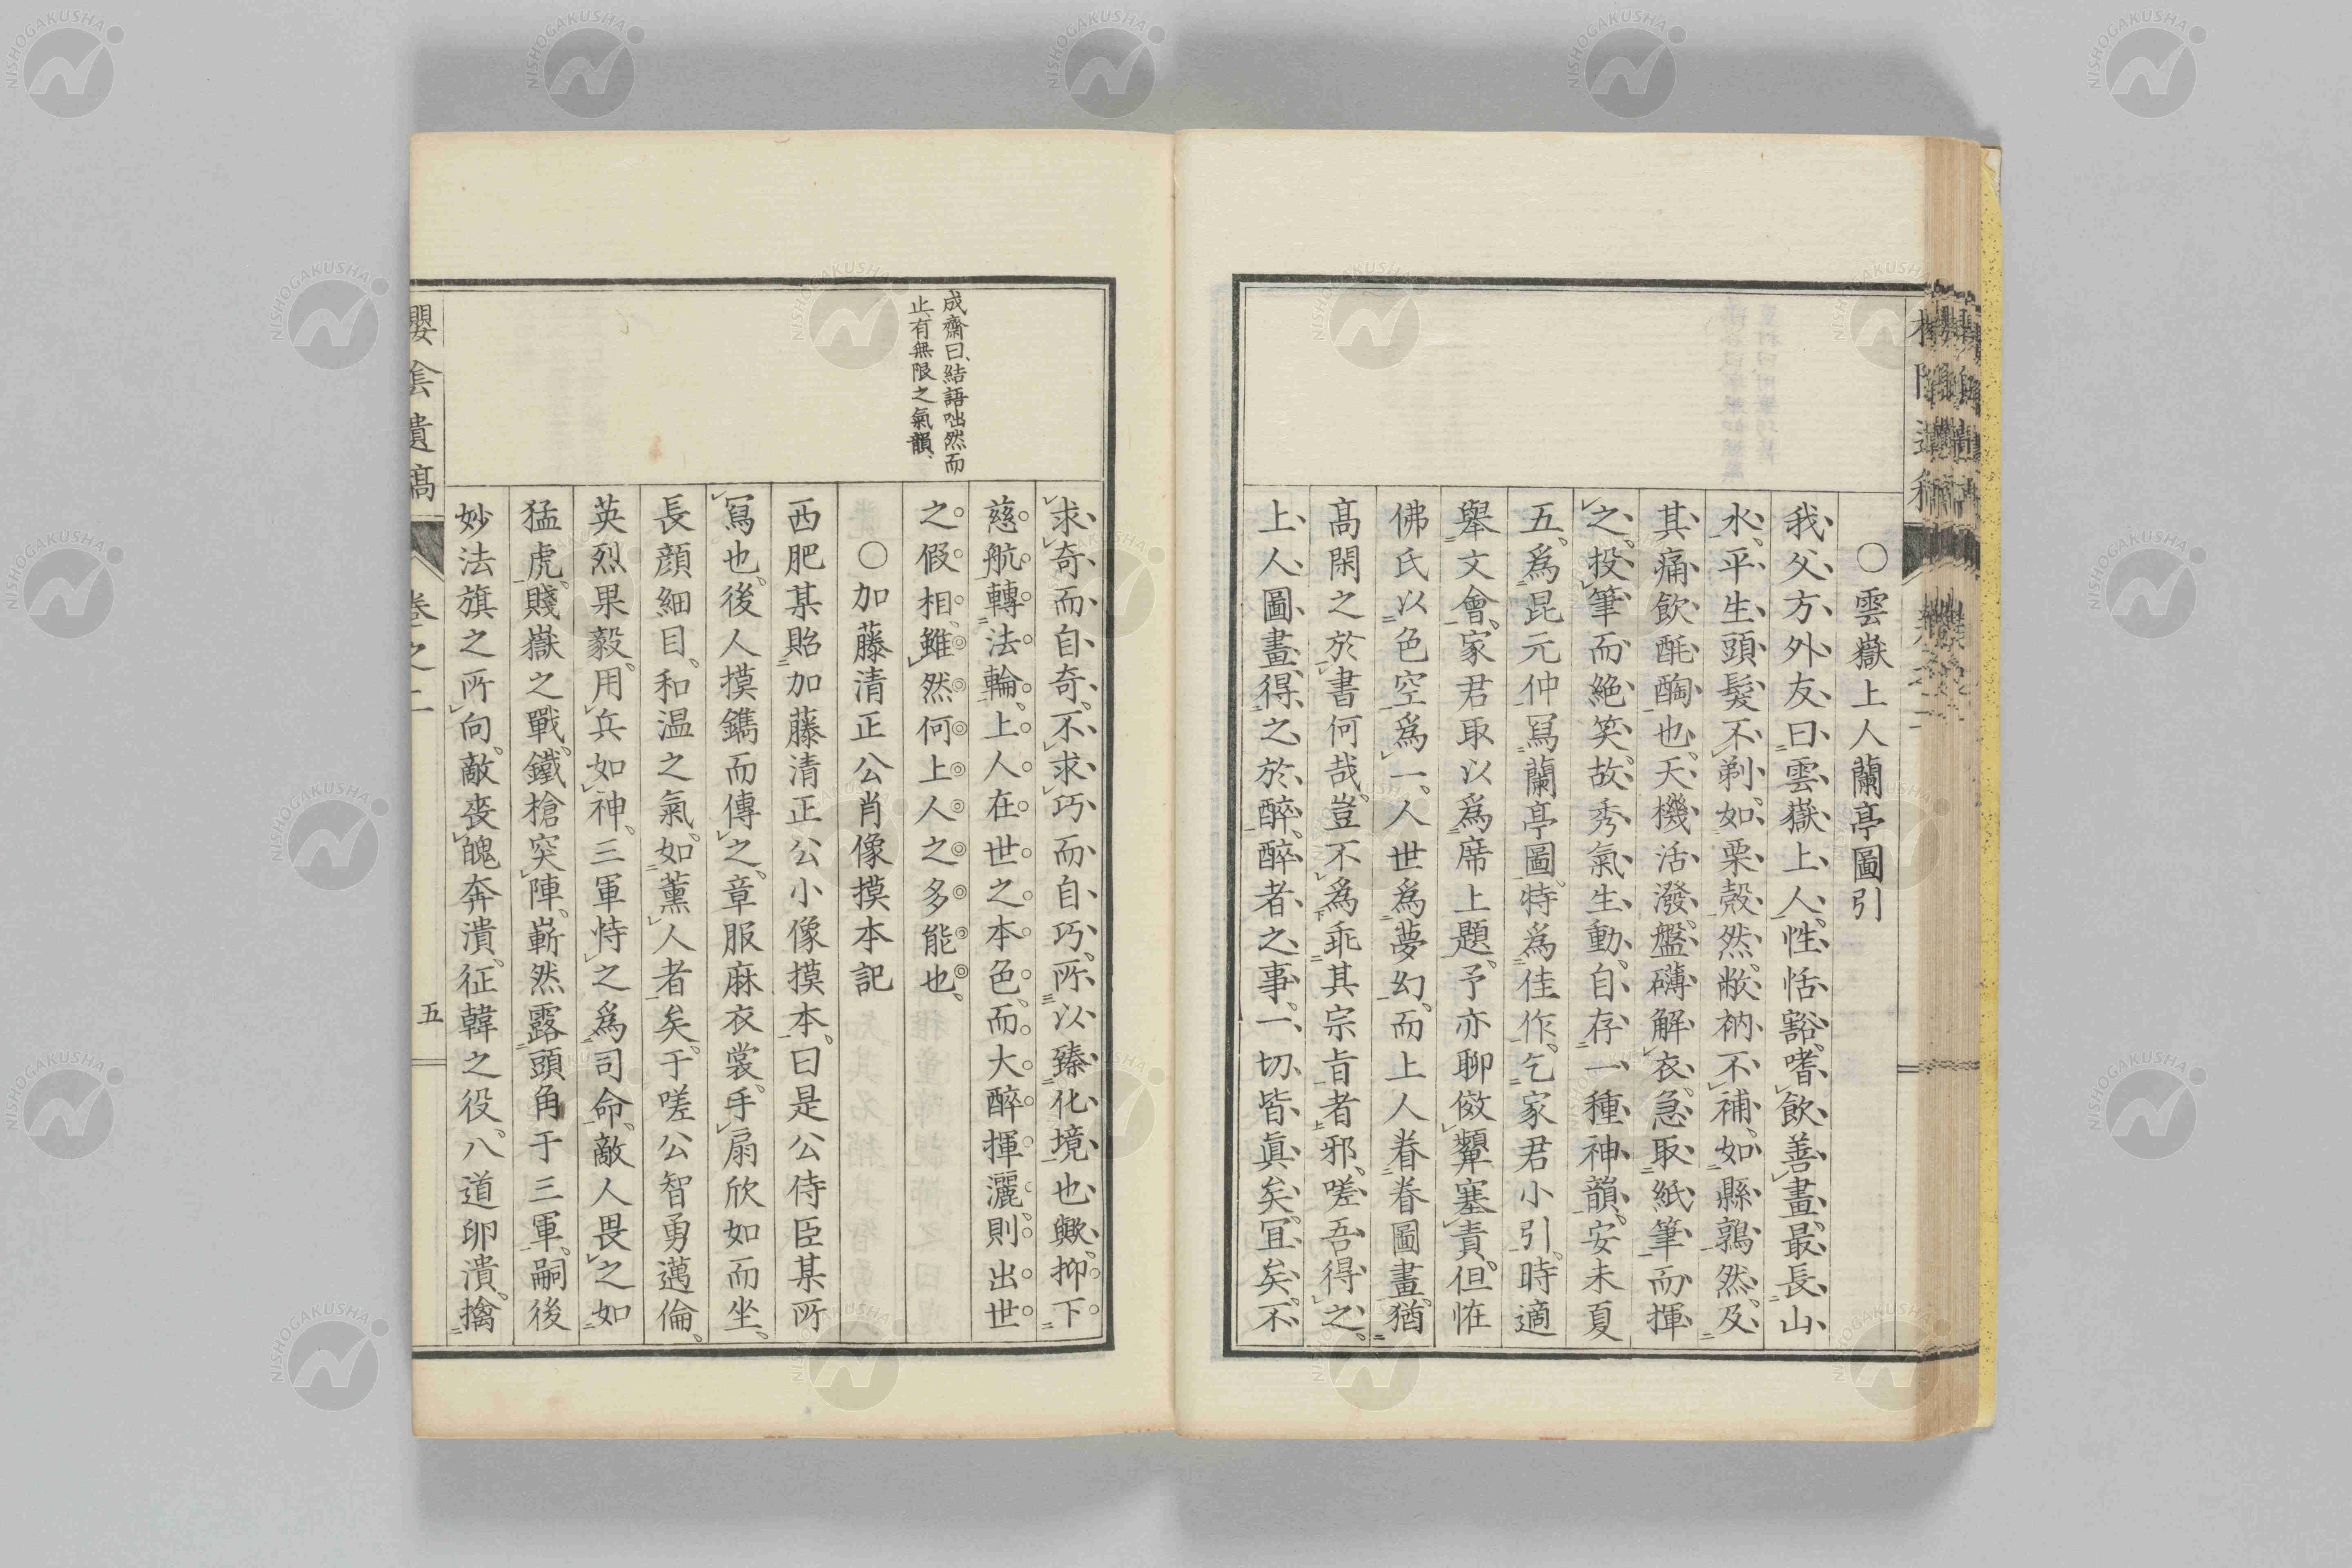 〇雲嶽上人蘭亭圖引
我父方外友曰雲嶽上人性恬豁嗜飮善畫最長山
水平生頭髮不剃如栗殼然敝衲不補如縣鶉然及
其痛飮酕醄也天機活潑盤礴解衣急取紙筆而揮
之投筆而絶笑故秀氣生動自存一種神韻安未夏
五爲昆元仲冩蘭亭圖特爲佳作乞家君小引時適
擧文會家君取以爲席上題予亦聊傚顰塞責但恠
佛氏以色空爲一人世爲夢幻而上人眷眷圖畫猶
高閑之於書何哉豈不爲乖其宗旨者邪嗟吾得之
上人圖畫得之於醉醉者之事一切皆眞矣冝矣不
求奇而自奇不求巧而自巧所以臻化境也歟抑下
慈航轉法輪上人在世之本色而大醉揮灑則出世
之假相雖然何上人之多能也
成齋曰結語咄然而
止有無限之氣韻
〇加藤清正公肖像摸本記
西肥某貽加藤清正公小像摸本曰是公侍臣某所
冩也後人摸鐫而傳之章服麻衣裳手扇欣如而坐
長顔細目和温之氣如薫人者矣于嗟公智勇邁倫
英烈果毅用兵如神三軍恃之爲司命敵人畏之如
猛虎賤嶽之戰鐵槍突陣嶄然露頭角于三軍嗣後
妙法旗之所向敵喪魄奔潰征韓之役八道卵潰擒
遺稿
卷之二
五